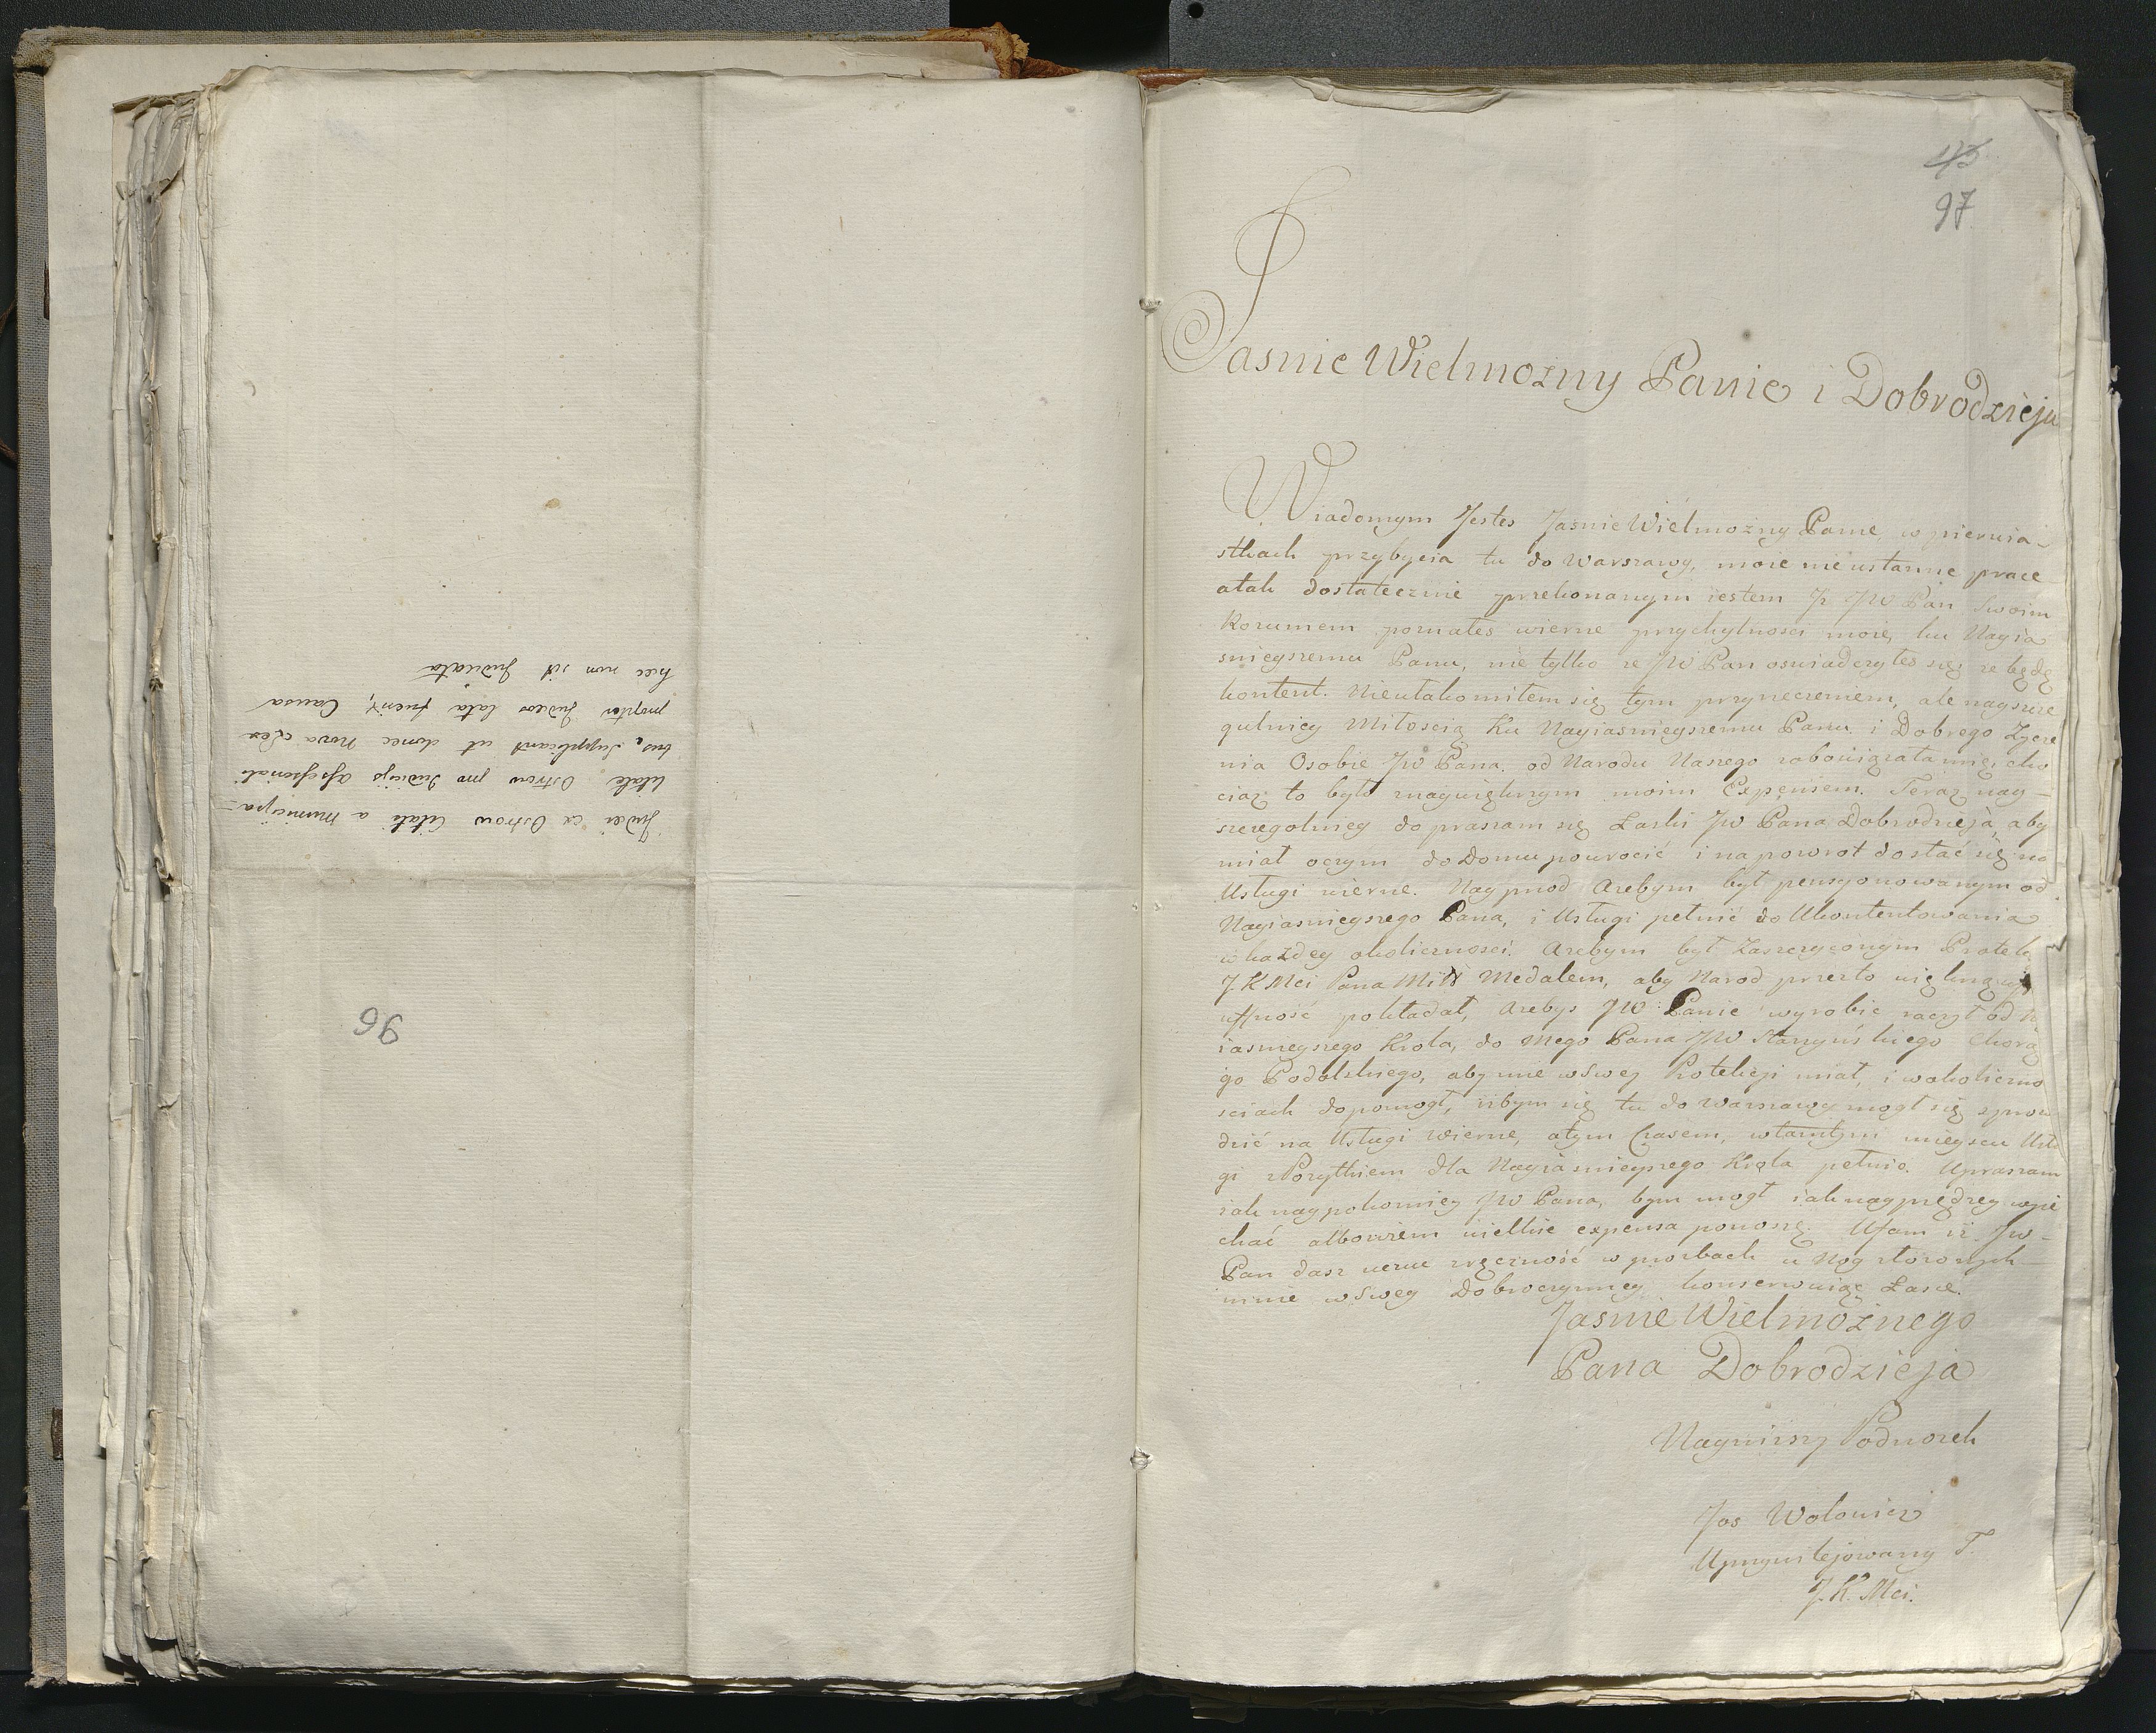 Judei ex Ostrow Citati a municipa-
litate Ostrow pro Judicijs Assessoriali
bus, Supplicant ut donec Nova Lex
propter Judeos lata fuerit, Causa
hec non sit Judicata
96
43
97
Jasnie Wielmozny Panie i Dobrodzieju
Wiadomym Jestes Jasnie Wielmozny Panie, w pierwia-
stkach przybycia tu do Warszawy, moie nieustanne prace
atak dostatecznie przekonanym iestem Jz JW Pan Swoim
Rozumem poznałes wierne przychylnosci moię ku Nayia
snieyszemu Panu, nie tylko ze JW Pan oswiadczyłes się ze będę
kontent. Nieukakomiłem się tym przyrzeczeniem, ale nayszcze
gulniey Miłoscią Ku Nayiasnieyszemu Panu i Dobrego Zycze
nia Osobie JW Pana od Narodu Naszego zobowiązałamię, cho
ciaz to było znaywiększym moim Expensem. Teraz nay-
szczegolniey dopraszam się Łaski JW Pana Dobrodzieja, aby
miał oczym do Domu powrocić i napowrot dostać się na
Usługi wierne. Nayprzod Azebym był pensyonowanym od
Nayiasnieyszego Pana, i Usługi pełnić do Ukontentowania
w kazdey okolicznosci. Azebym był Zaszczyconym Protek
J. K Mci Pana Mił Medalem, aby Narod przezto większą
ufność pokładał, Azebys JW: Panie wyrobic raczył od N
iasnieyszego Krola, do Mego Pana JW Starzyńskiego Chorą
go Podolskiego, aby mne w Swey Protekcyi miał, i wokoliczno
sciach dopomogł, izbym się tu do Warszawy mogł się sprow
dzić na Usługi wierne, atym Czasem, wtamtym mieyscu Usłu
gi z Pozytkiem dla Nayiasnieyszego Krola pełnic. Upraszam
iak naypokorniey JW Pana, bym mogł iak nayprędzey wyie
chać albowiem wielkie expensa ponoszę. Ufam iz JW-
Pan dasz uczue zręczność w prozbach u Nog złozonych
mnie w Swey Dobroczynney konserwuiąc Łasce.
Jasnie Wielmoznego
Pana Dobrodzieja
Naynizszy Podnozek
Jos Wolowicz
Uprzywilejowany F.
J. K. Mci.